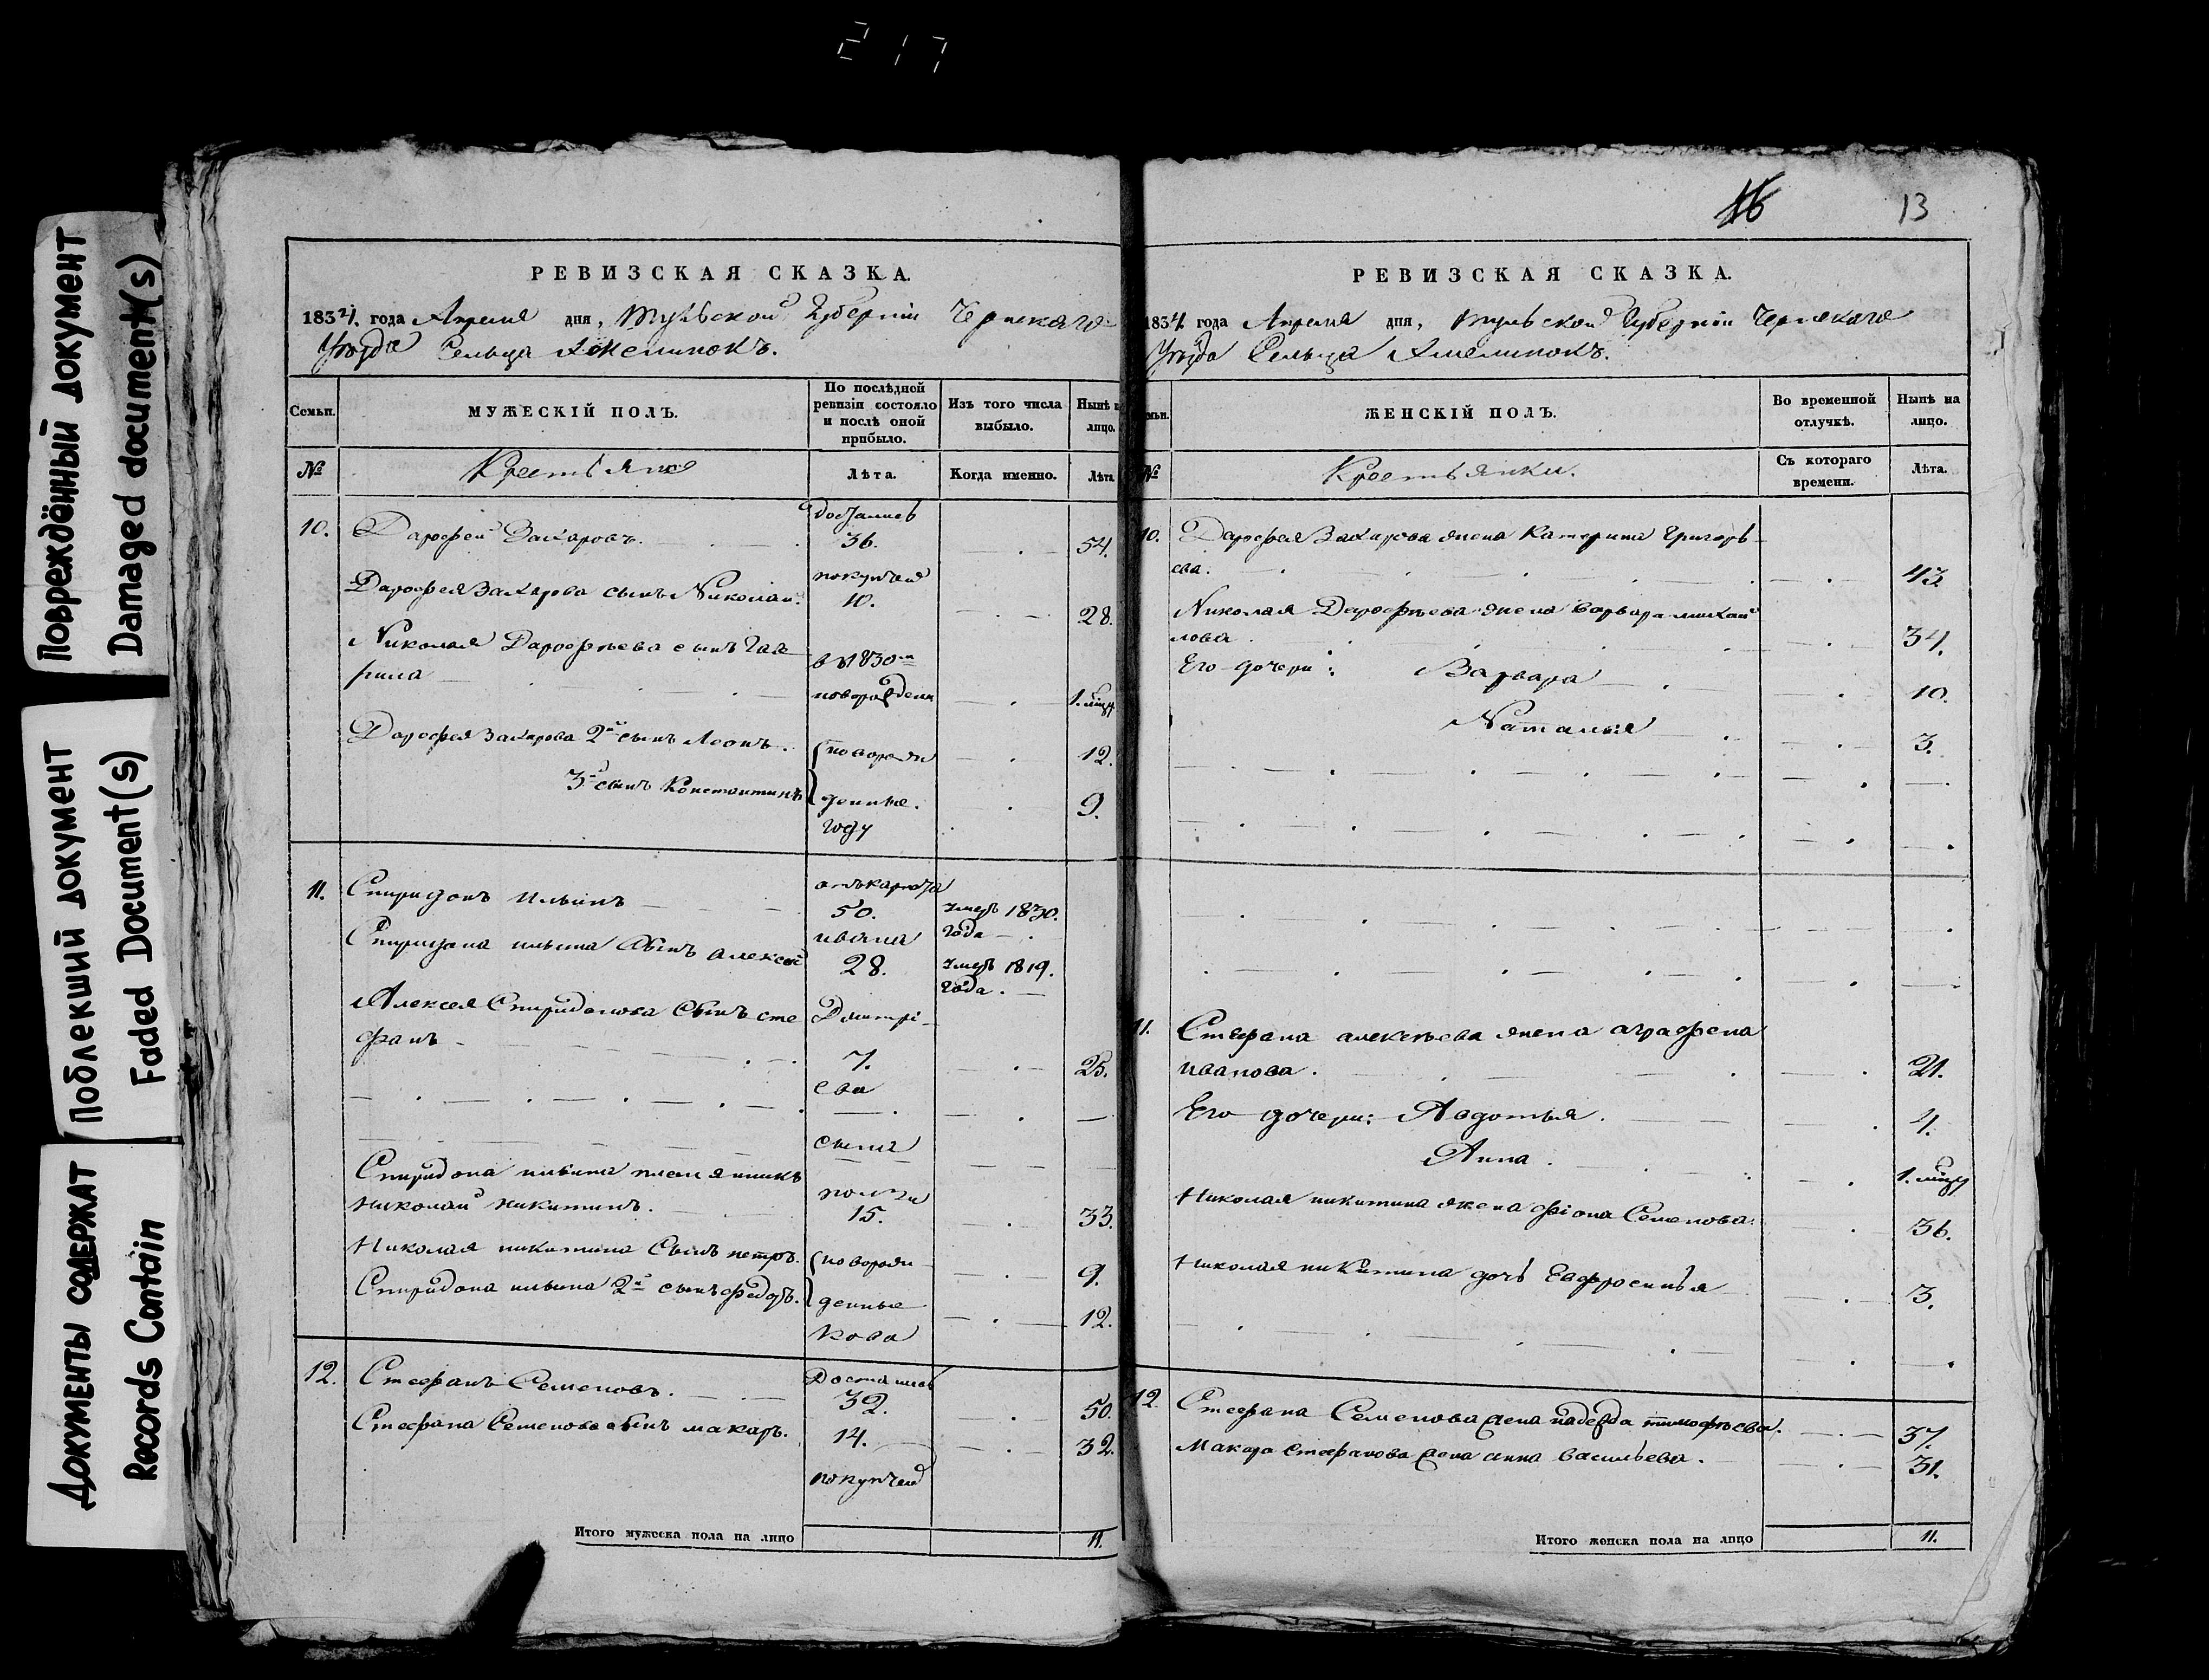 217
Повреждённый документ
Damaged document(s)
Поблекший документ
Faded Document(s)
Документы содержат
Records Contain
РЕВИЗСКАЯ СКАЗКА.
1834. года Апреля дня, Тульской Губернiи Чернскаго
Уѣзда Сельца Амелинокъ.
Семьи.
МУЖЕСКІЙ ПОЛЪ.
По послѣдней ревизіи состояло и послѣ оной прибыло.
Изъ того числа выбыло.
Нынѣ на лицо.
№
Крестьяне
Лѣта.
Когда именно.
Лѣта
Достались
10. Дарофей Захаровъ. 36. 54.
покупчей
Дарофея Захарова сынъ Николай. 10. 28.
Николая Дарофѣева сынъ Гав
рила
въ 1830м
новорожден 1. мцу
Дарофея Захарова 2й сынъ Леонъ. новорож 12.
3й сынъ Константинъ денные. 9.
году
11. Спиридонъ Ильинъ 50. умеръ 1830. года
Ивана
Спиридона ильина Сынъ алексей 28. умеръ 1819. года
Алексея Спиридонова Сынъ сте
фанъ
Дмитрi
7. 25.
ева
сына
Спиридона ильина племянникъ
николай никитинъ. 15. 33.
Николая никитина Сынъ петръ. новорож 9.
Спиридона ильина 2й сынъ федоръ. денные 12.
кова
12. Стефанъ Семеновъ. Достались 32. 50.
Стефана Семенова сынъ макаръ. 14. 32.
покупчей
Итого мужеска пола на лицо 11.
16 13
РЕВИЗСКАЯ СКАЗКА.
1834. года Апреля дня, Тульской Губернiи Чернскаго
Уѣзда Сельца Амелинокъ.
ЖЕНСКІЙ ПОЛЪ.
Во временной отлучкѣ.
Нынѣ на лицо.
№
Крестьянки.
Съ котораго времени.
Лѣта.
10. Дарофея Захарова жена Катерина Григорь
ева. 43.
Николая Дарофѣева жена варвара михай
лова 34.
Его дочери: Варвара 10.
Наталья 3.
11. Стефана алексѣева жена аграфена
иванова. 21.
Его дочери: Авдотья. 4.
Анна. 1. мцу
Николая никитина жена фiона Семенова. 36.
Николая никитина дочь Евфросинья 3.
12. Стефана Семенова жена надежда тимофѣева. 37.
Макара Стефанова жена анна васильева. 31.
Итого женска пола на лицо 11.